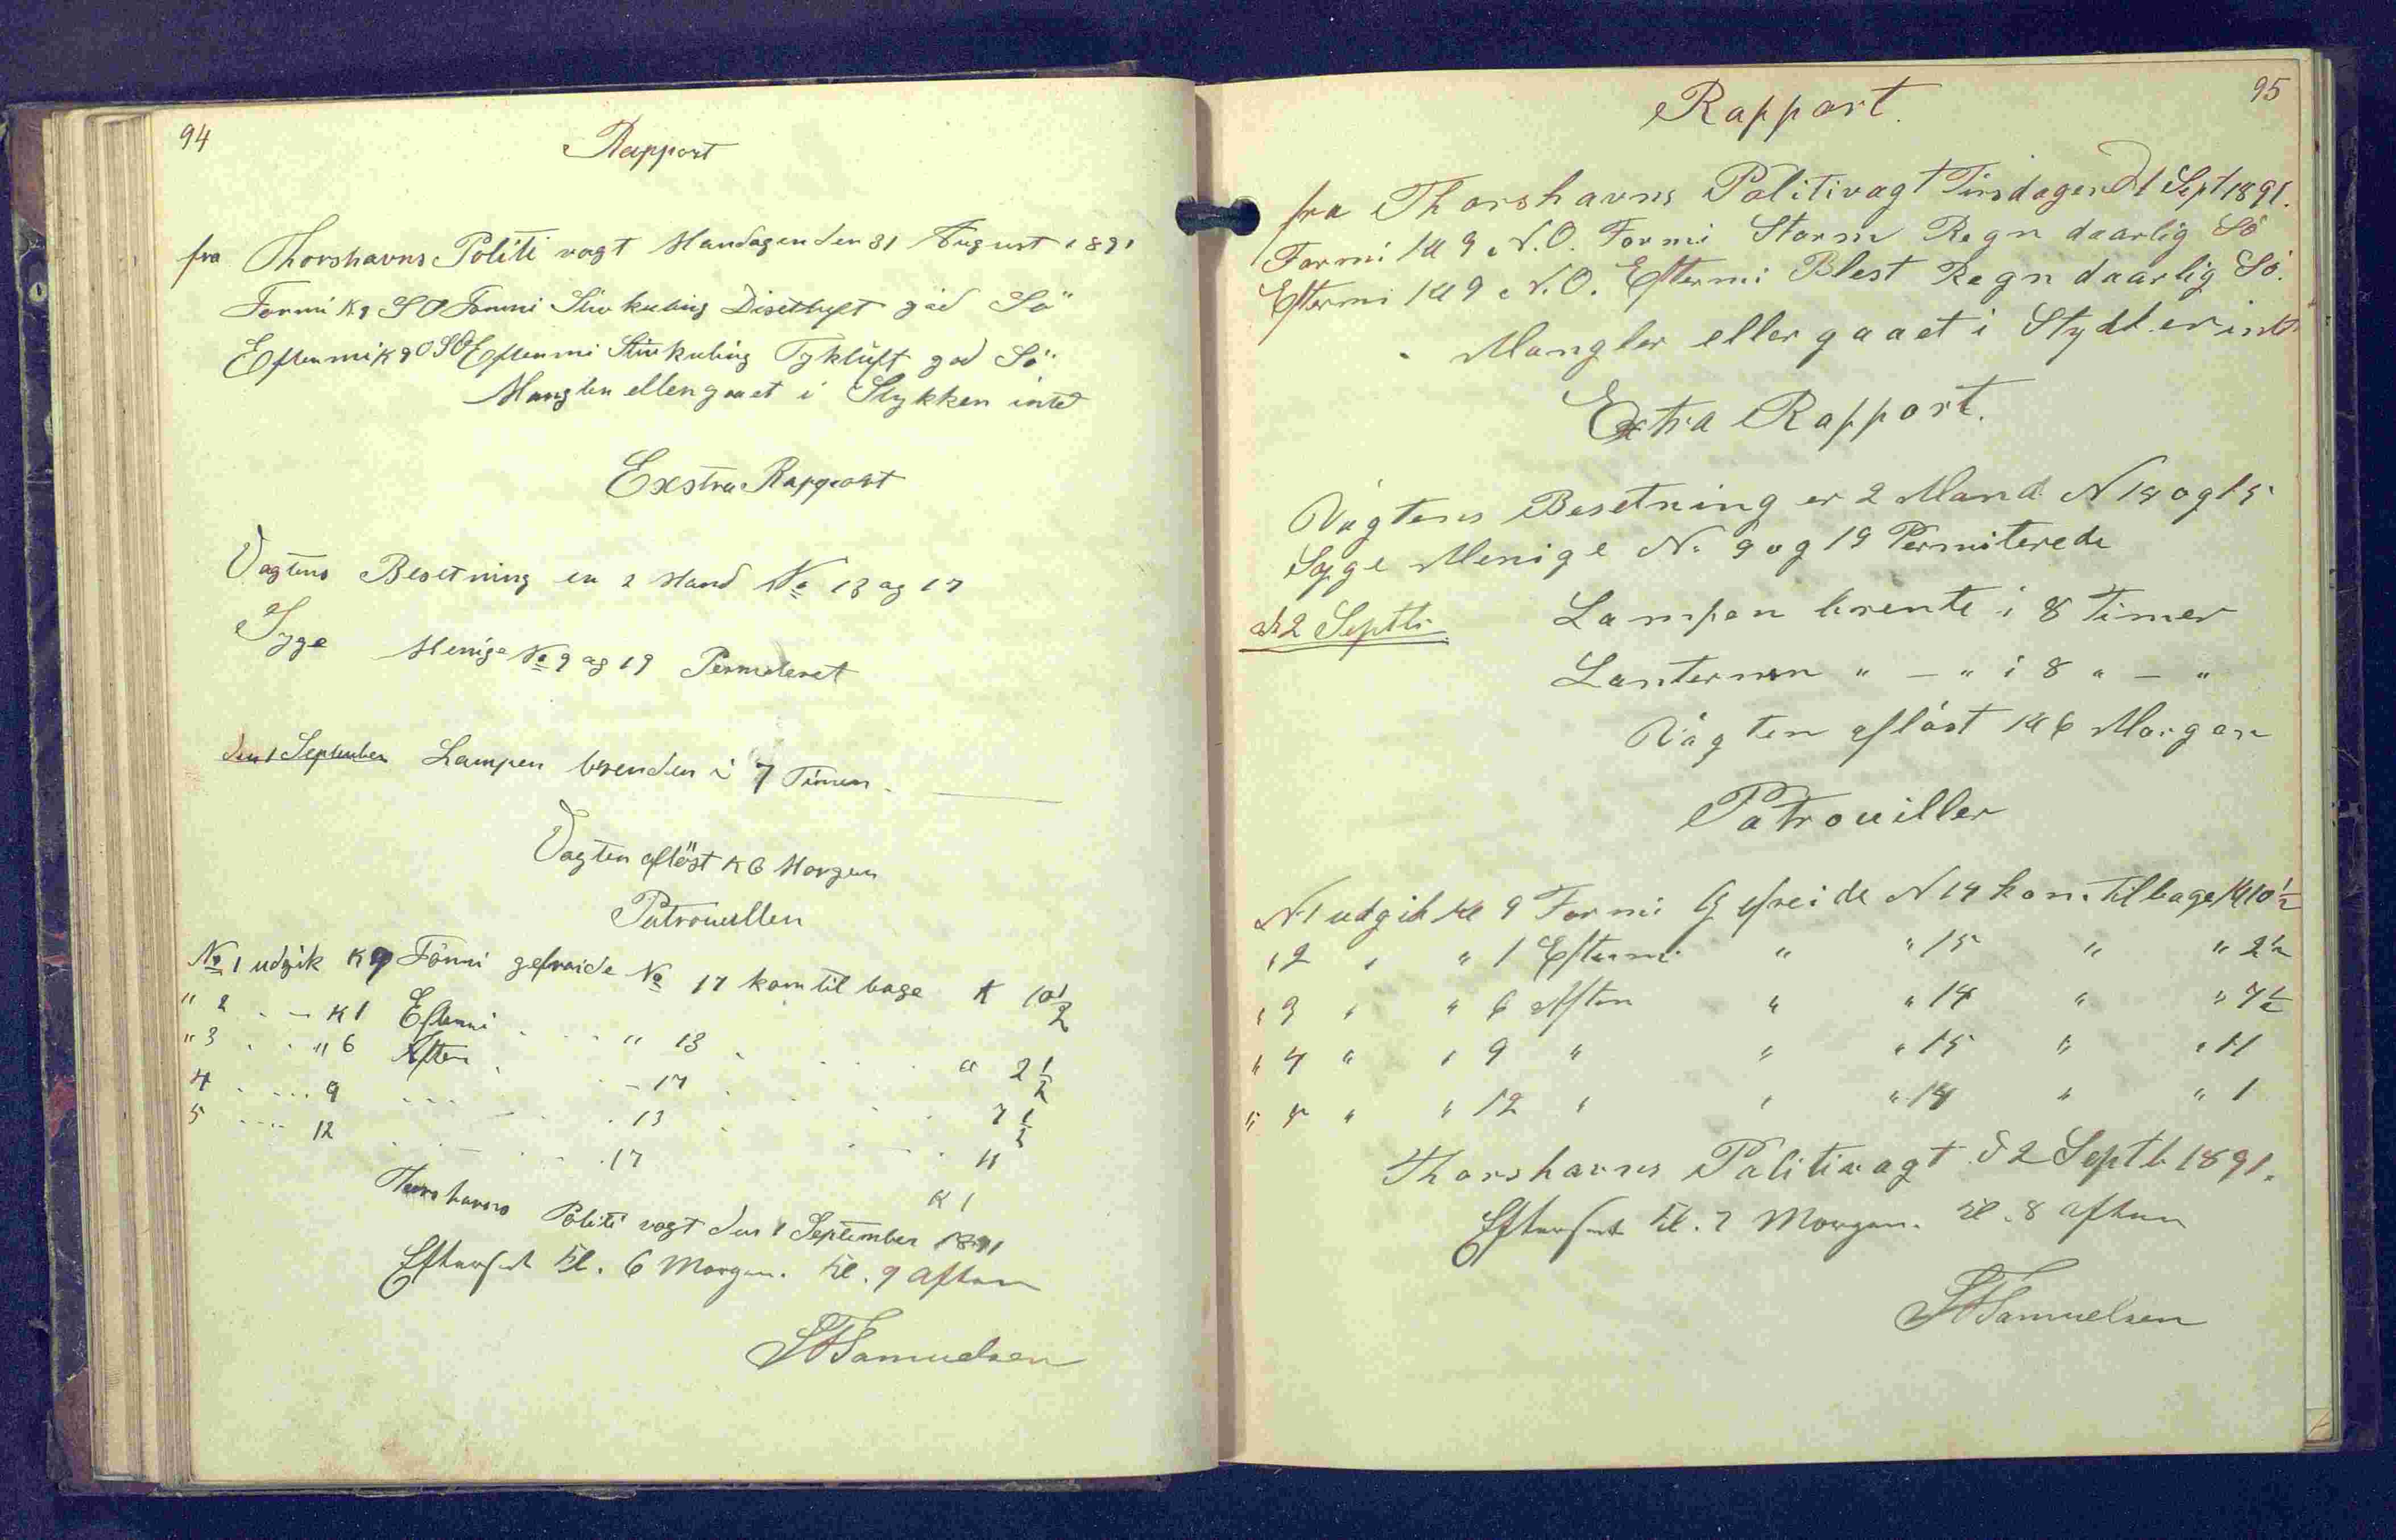 94
Rapport
fra Thorshavns Politi vagt Mandagen den 31 August 1891
Formi K 9 SO Formi Stiv kuling Diset luft god Sö
Eftermi K 9 OSO Eftermi Stiv kuling Tyk luft god Sö
Mangler eller gaaet i Stykker intet
Exstra Rapport
Vagtens Besetning er 2 Mand No 13 og 17
Syge Menige No 9 og 19 Permeteret
den 1 September Lampen brenden i 7 Timer.
Vagten aflöst K 6 Morgen
Patrouillen
No 1 udgik K 9 Formi gefreide No 17 kom til bage K 10 1/2
" 2 . . - K 1 Eftermi . . . " 13 . . . " 2 1/2
" 3 . . " 6 Aften . . . - 17 . . . 7 1/2
4 . . . . 9 . . . . 13 . . . 11
5 . . . . 12 . . . . 17 K 1
Thorshavns Politi vagt den 1 September 1891
Efterset Kl. 6 Morgen. Kl. 9 aften
Samuelsen
95
Rapport.
fra Thorshavns Politivagt Tirsdagen d 1 Sept 1891.
Formi Kl 9 N.O. Formi Storm Regn daarlig Sö
Eftermi Kl 9 N.O. Eftermi Blest Regn daarlig Sö.
Mangler eller gaaet i er intet
Extra Rapport.
Vagtens Besetning er 2 Mand N 14 og 15
Syge Menige N. 9 og 19 Permiterede
d. 2 Septb. Lampen brente i 8 Timer
Lanternen " - " i 8 " - "
Vagten aflöst Kl 6 Morgen
Patrouiller
N 1 udgik Kl 9 Formi Gefreide N 14 kom tilbage Kl 10 1/2
" 2 " " 1 Eftermi " " 15 " " 2 1/2
" 3 " " 6 Aften " " 14 " " 7 1/2
" 4 " " 9 " " " 15 " " 11
" 5 " " 12 " " " 14 " " 1
Thorshavns Politivagt d 2 Septb 1891.
Efterset Kl. 7 Morgen. Kl. 8 aften
Samuelsen